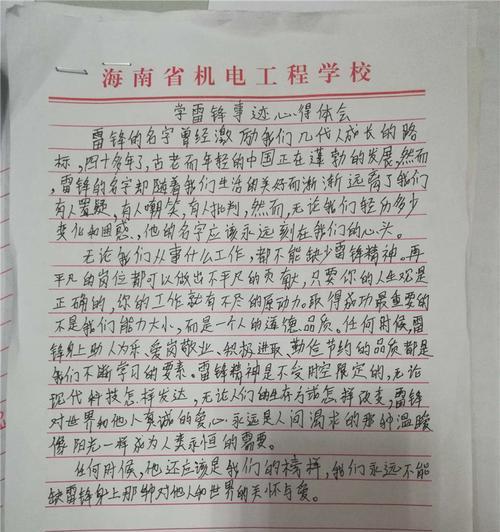 海南省机电工程学校
学雷锋事迹心得体会
雷锋的名字曾经激励我们几代人成长的路
标，四十多年了，古老而年轻的中国正在蓬勃的发展，然而，
雷锋的名字却随着我们生活的美好而渐渐远离了我们
有人置疑，有人嘲笑，有人批判，然而，无论我们轻历多少
变化和困惑，他的名字应该永远刻在我们的心头。
无论我们从事什么工作，都不能缺少雷锋精神。再
平凡的岗位都可以做出不平凡的贡献，只要你的人生观是
正确的，你的工作就有不尽的原动力。取得成功最重要的
不是我们能力大小，而是一个人的道德品质。任何时候，雷
锋身上助人为乐、爱岗敬业、积极进取、勤俭节约的品质都是
我们不断学习的要素。雷锋精神是不受时空限定的，无论
现代科技怎样发达，无论人们的生存方式怎样改变，雷锋
对世界和他人真诚的爱心，永远是人间渴求的那种温暖
像阳光一样成为人类永恒的需要。
任何时候，他还应该是我们的榜样，我们永远不能
缺雷锋身上那种对他人和世界的关怀与爱。